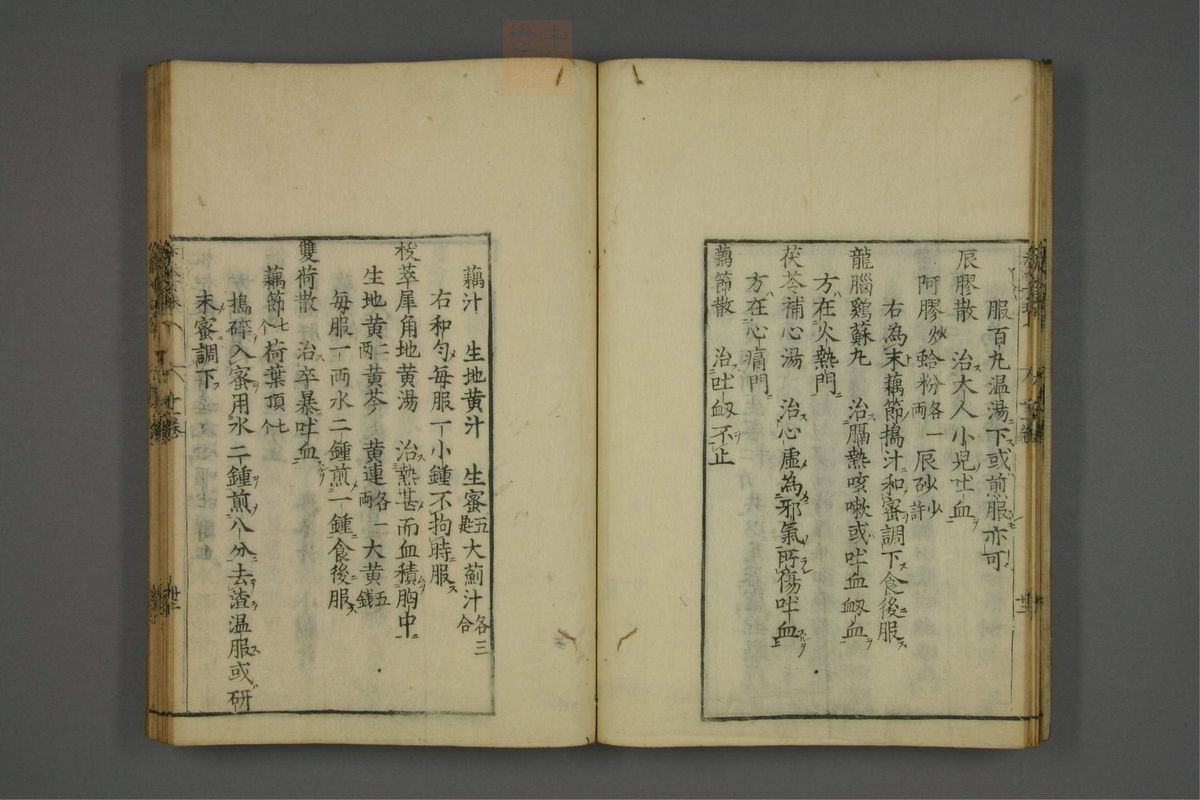 服百丸温湯下或煎服亦可
辰膠散　治大人小児吐血
阿膠炒　蛤粉各一両　辰砂少許
右為末藕節搗汁和蜜調下食後服
龍腦鷄蘇丸　治膈熱咳嗽或吐血衂血
方在火熱門
茯苓補心湯　治心虛為邪氣所傷吐血
方在心痛門
藕節散　治吐衂不止
藕汁　生地黄汁　生蜜五匙　大薊汁各三合
右和勻每服一小鍾不拘時服
栝蔞犀角地黄湯　治熱甚而血積胸中
生地黄二両　黄芩　黄連各一両　大黄五錢
每服一両水二鍾煎一鍾食後服
雙荷散　治卒暴吐血
藕節七个　荷葉頂七个
搗碎入蜜用水二鍾煎八分去渣温服或研
末蜜調下